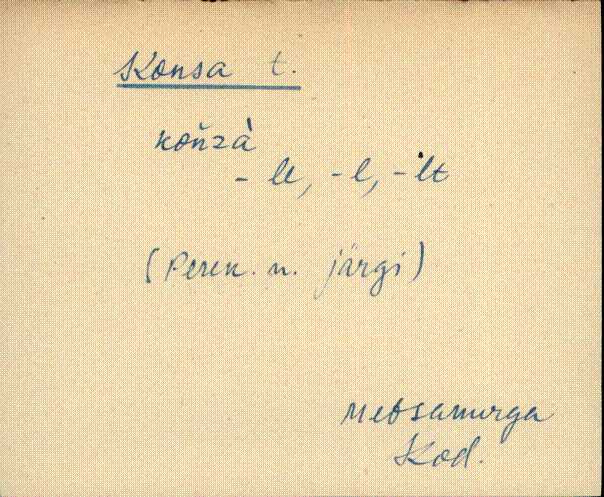 Konsa t.
kon̆zà
- le, -l, -lt
(Peren. n. järgi)
Metsanurga
Kod.